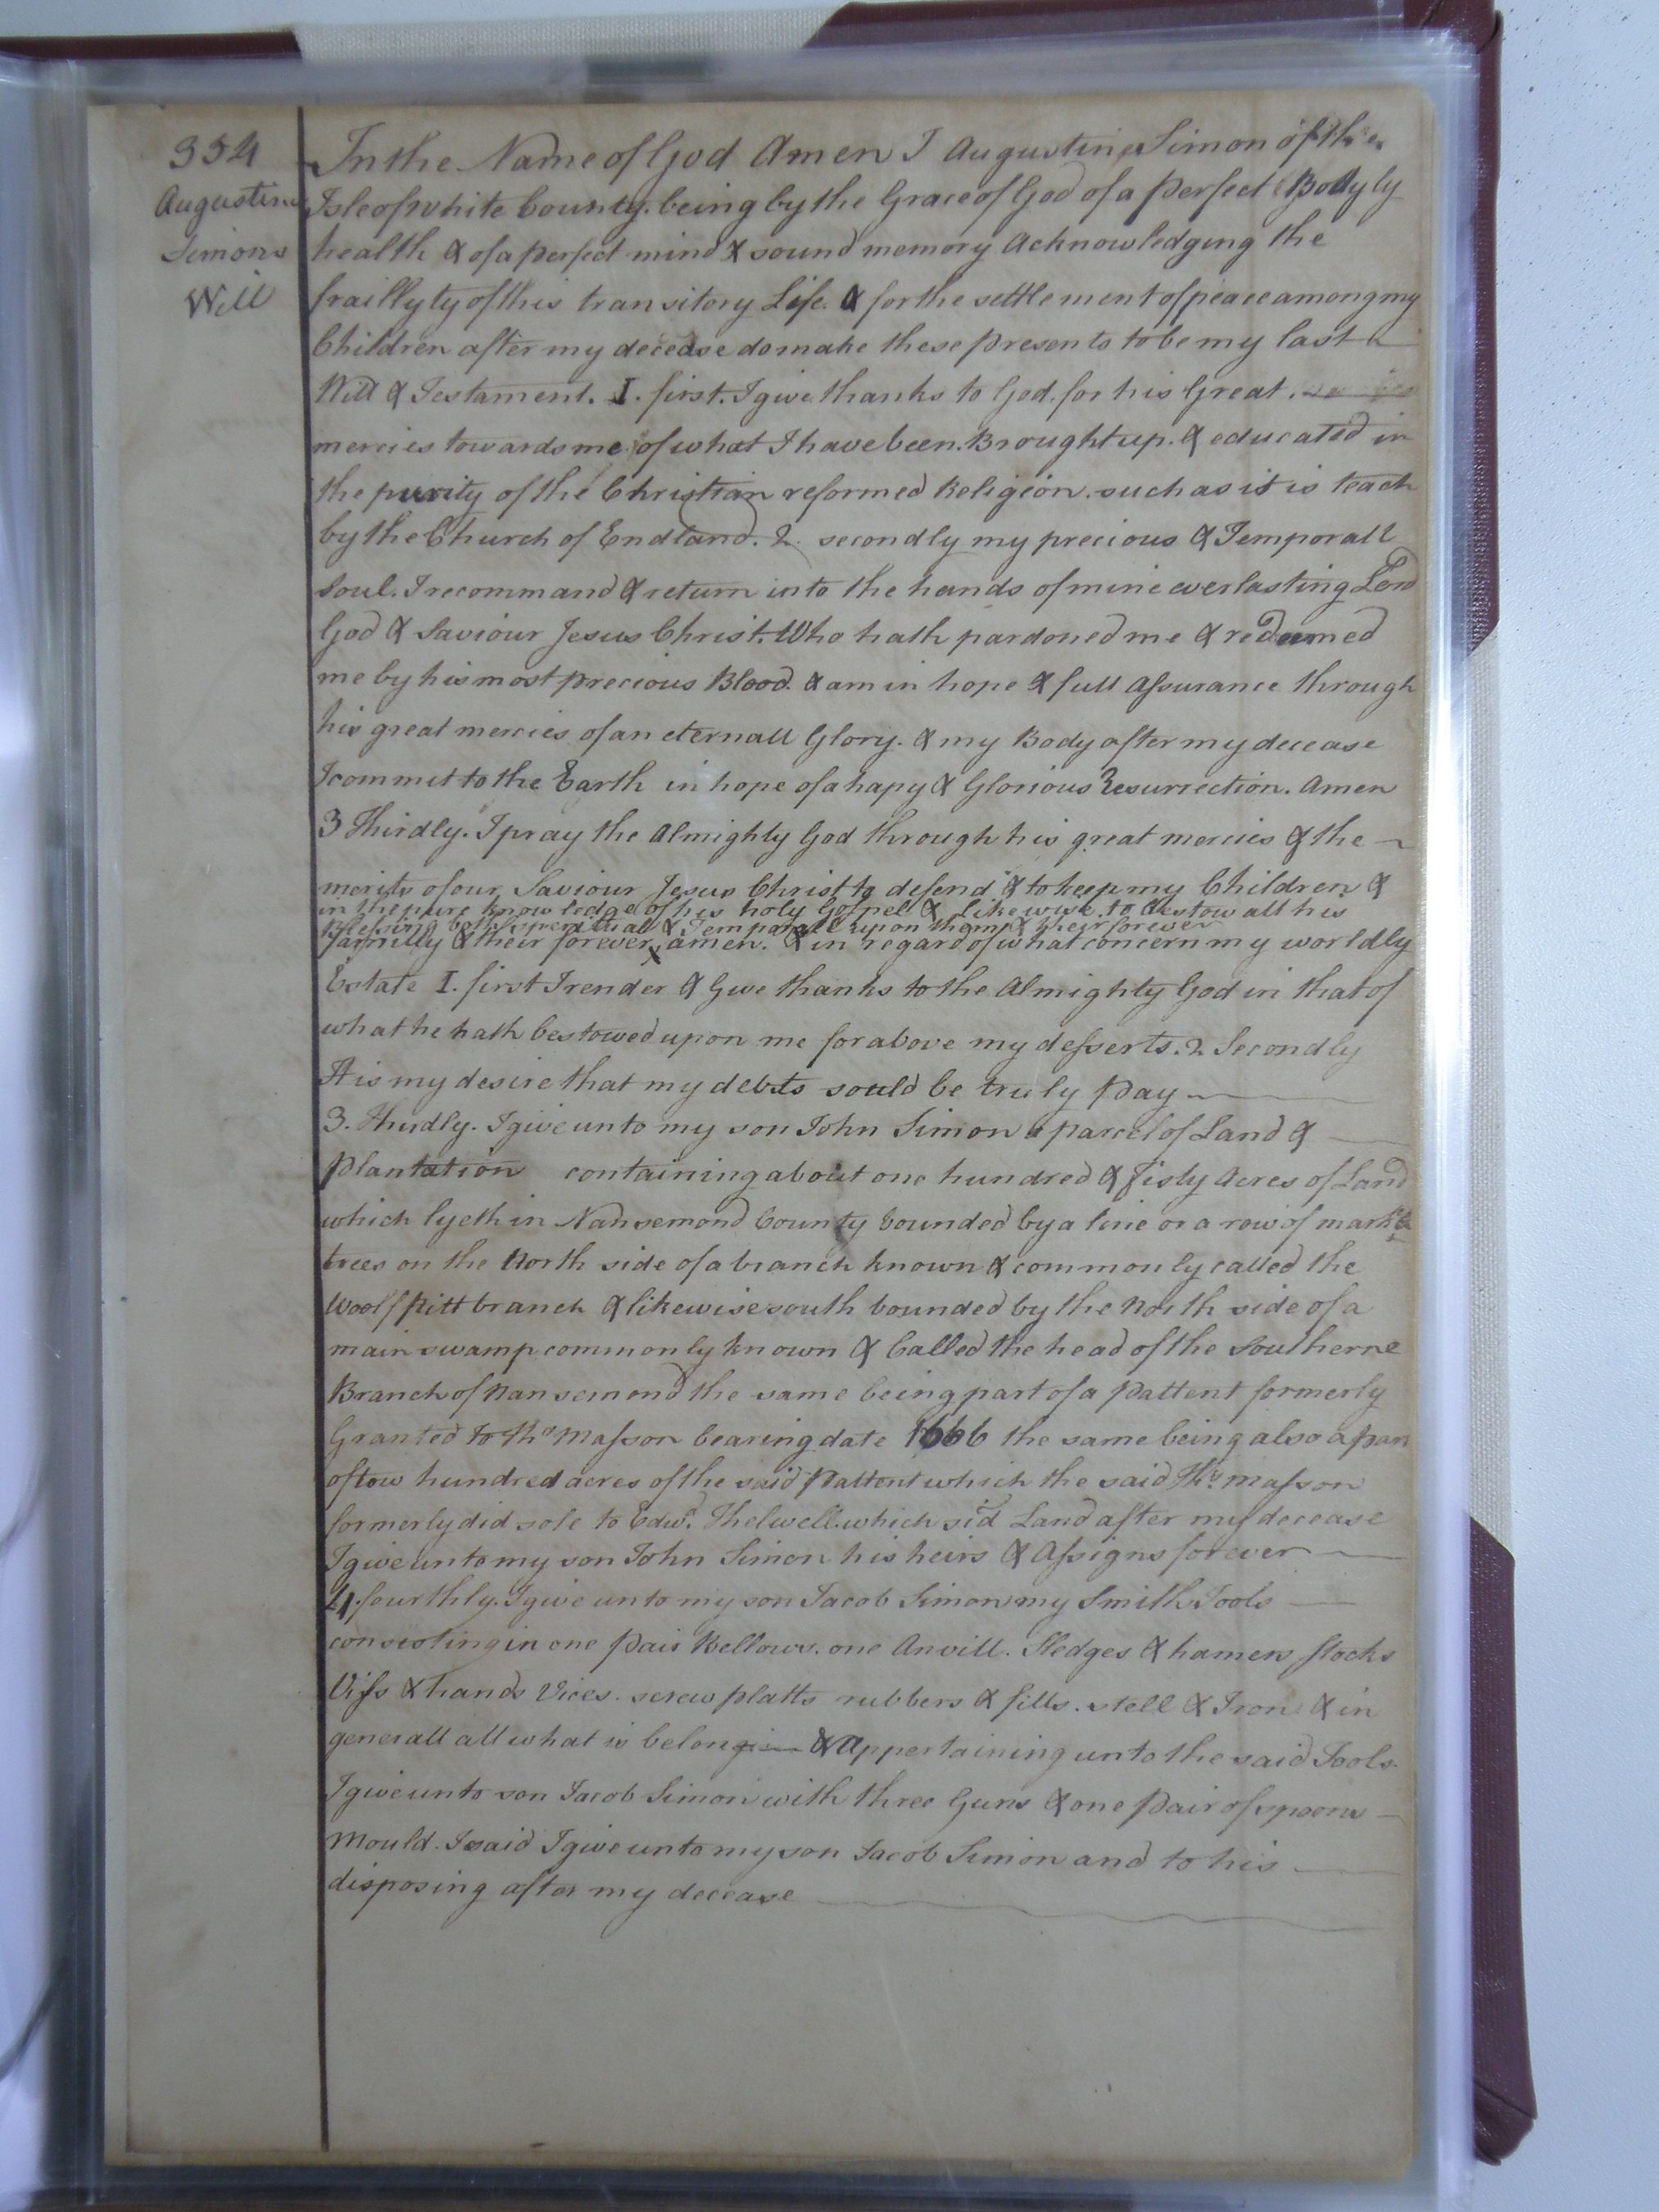 354
Augustine
Simons
Will
In the Name of God Amen I Augustine Simon of the
Isle of white County. being by the Grace of God of a perfect Bodyly
health & of a perfect mind & sound memory Acknowledging the
fraillyty of this transitory Life. & for the settlement of peace among my
Children after my decease do make these presents to be my last
Will & Testament. I. first. I give thanks to God. for his Great
mercies towards me of what I have been. Brought up. & educated in
the purity of the Christian reformed Religion. such as it is teach
by the Church of Endland. 2. secondly my precious & Temporall
soul. I recommand & return into the hands of mine everlasting Lord
God & Saviour Jesus Christ. Who hath pardoned me & redeemed
me by his most precious Blood. & am in hope & full Assurance through
his great mercies of an eternall Glory. & my Body after my decease
I commit to the Earth in hope of a hapy & Glorious Resurrection. Amen
3 Thirdly. I pray the Almighty God through his great mercies & the
merits of our Saviour Jesus Christ to defend & to keep my Children &
in the pure knowledge of his holy Gospel & likewise. to bestow all his
Blessing both spiritual & Temporall upon them & their forever
familly & their forever amen. & in regard of what concern my worldly
Estate I. first I render & Give thanks to the Almighty God in that of
what he hath bestowed upon me for above my desserts. 2. Secondly
It is my desire that my debts sould be truly Pay
3. Thirdly. I give unto my son John Simon a parcel of Land &
Plantation containing about one hundred & fisty Acres of Land
which lyeth in Nansemond County bounded by a line or a row of markt
trees on the North side of a branch known & commonly called the
Woolf Pitt branch & likewise south bounded by the North side of a
main swamp commonly known & Called the head of the Southerne
Branch of Nansemond the same being part of a Pattent formerly
Granted to Tho Masson bearing date 1666 the same being also a part
of tow hundred acres of the said Pattent which the said Tho. Masson
formerly did sole to Edwd. Thelwell. which sid Land after my decease
I give unto my son John Simon his heirs & Assigns forever
4. fourthly. I give unto my son Jacob Simon my Smith Tools
consisting in one Pair Bellows. one Anvill. Sledges & hamers stocks
Viss & hands Vices. screw platts rubbers & fills. stell & Iron & in
generall all what is belong & Appertaining unto the said Tools.
I give unto son Jacob Simon with three Guns & one Pair of spoons
Mould. I said I give unto my son Jacob Simon and to his
disposing after my decease